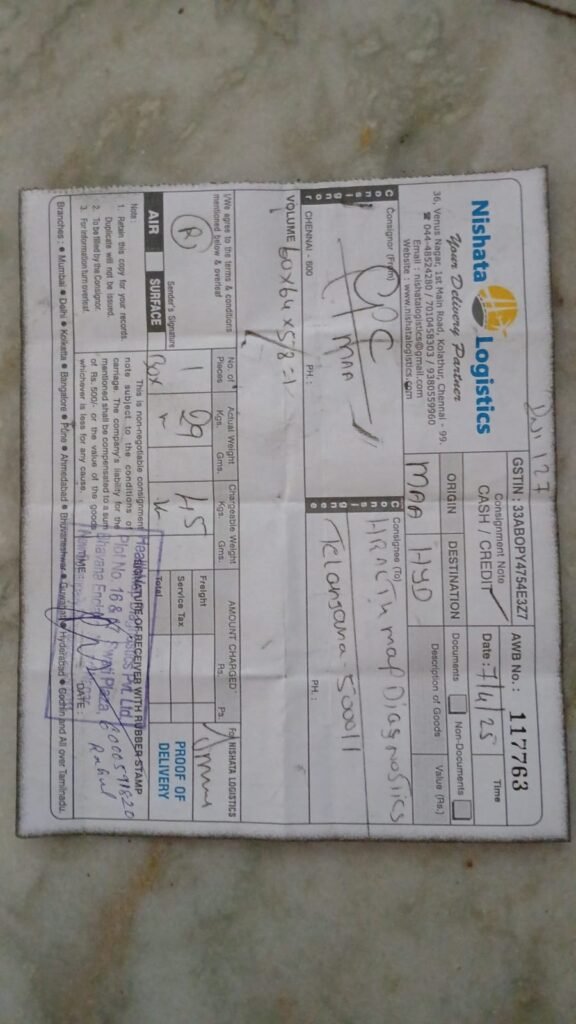 Nishata Logistics
Your Delivery Partner
36, Venus Nagar, 1st Main Road, Kolathur, Chennai - 99.
☎ 044-48524280 / 7010458303 / 9380559960
Email : nishatalogistics@gmail.com
Website : www.nishatalogistics.com
GSTIN: 33ABOPY4754E3Z7
Consignment Note
CASH / CREDIT
AWB No.: 117763
Date: 7/4/25
Time
ORIGIN
DESTINATION
MAA
HYD
Documents
Non-Documents
Description of Goods
Value (Rs.)
Consignor
Consignor (From)
CPC
MAA
CHENNAI - 600
PH :
Consignee
Consignee (To)
Diagnostics
Telangana - 500011
PH. :
VOLUME 60x64x58=1
I/We agree to the terms & conditions
mentioned below & overleaf
Sender's Signature
AIR
SURFACE
No. of Places
Actual Weight
Kgs. Gms.
Chargeable Weight
Kgs. Gms.
1
Box
29
45
AMOUNT CHARGED
Rs. Ps.
Freight
Service Tax
Total
For NISHATA LOGISTICS
PROOF OF DELIVERY
Note :
1. Retain this copy for your records.
Duplicate will not be issued.
2. To be filled by the Consignor.
3. For information turn overleaf.
This is non-negotiable consignment
note subject to the conditions of
carriage. The company's liability for the
mentioned shall be compensated to a sum
of Rs. 500/- or the value of the goods
whichever is less for any cause.
SIGNATURE OF RECEIVER WITH RUBBER STAMP
Pvt. Ltd.
Plot No. 16 &
Bhavana
Plaza,
Rahul
NAME
DATE :
Branches : ● Mumbai ● Delhi ● Kolketta ● Bangalore ● Pune ● Ahmedabad ● Bhuvaneshwar ● Guwahati ● Hyderabad ● Cochin and All over Tamilnadu.